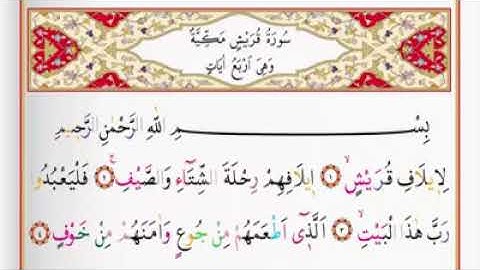 سُورَةُ قُرَيْشٍ مَكِّيَّةٌ
وَهِيَ اَرْبَعُ اٰيَاتٍ
بِسْــــــــــــــــــــــمِ اللّٰهِ الرَّحْمٰنِ الرَّحٖيمِ
لِاٖيلَافِ قُرَيْشٍۙ ﴿١﴾ اٖيلَافِهِمْ رِحْلَةَ الشِّتَٓاءِ وَالصَّيْفِۚ ﴿٢﴾ فَلْيَعْبُدُوا
رَبَّ هٰذَا الْبَيْتِۙ ﴿٣﴾ اَلَّذٖٓى اَطْعَمَهُمْ مِنْ جُوعٍ وَاٰمَنَهُمْ مِنْ خَوْفٍ ﴿٤﴾